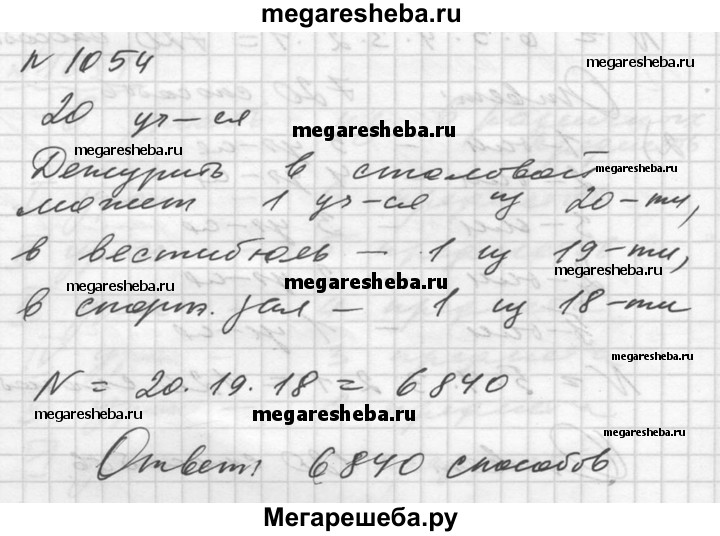 megaresheba.ru
N 1054
megaresheba.ru
20 уч-ся
megaresheba.ru
megaresheba.ru
Дежурить в столовой
megaresheba.ru
может 1 уч-ся из 20-ти,
в вестибюль — 1 из 19-ти,
megaresheba.ru
megaresheba.ru
megaresheba.ru
в спорт. зал — 1 из 18-ти
megaresheba.ru
N = 20. 19. 18 = 6840
megaresheba.ru
megaresheba.ru
megaresheba.ru
Ответ: 6840 способов.
Мегарешеба.ру